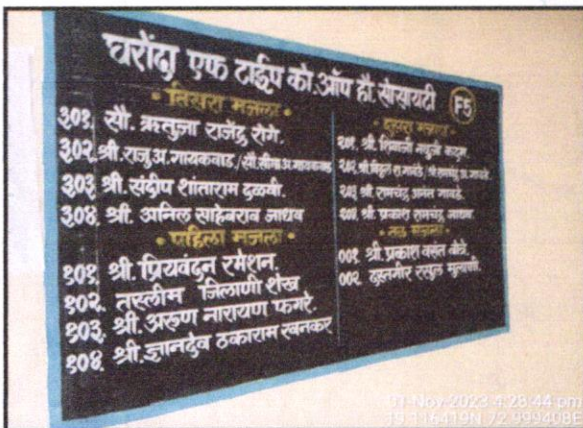 घरोंदा एफ टाईप को.ऑप हौ. सोसायटी F5
• तिसरा मजला •
३०१. सौ. ऋतुजा राजेंद्र रोगे.
३०२. श्री.राजु.अ.गायकवाड/सौ.सीमा.अ.गायकवाड
३०३ श्री. संदीप शांताराम दळवी.
३०४. श्री. अनिल साहेबराव जाधव
• पहिला मजला •
१०१. श्री. प्रियवंदन रमेशन.
१०२. तस्लीम जिलाणी शेख
१०३. श्री. अरुण नारायण फगरे.
१०४. श्री.ज्ञानदेव ठकाराम रबनकर
• दुसरा मजला •
२०१. श्री. शिवाजी
२०२ श्री.विठ्ठल
२०३ श्री. रामचंद्र अनंत गावडे.
२०४. श्री. प्रकाश रामचंद्र जाधव.
• तळ मजला •
००१. श्री. प्रकाश वसंत
००२. दस्तगीर रसुल मुलाणी.
11-Nov-2023 4:28:44 pm
19.116419N 72.999408E